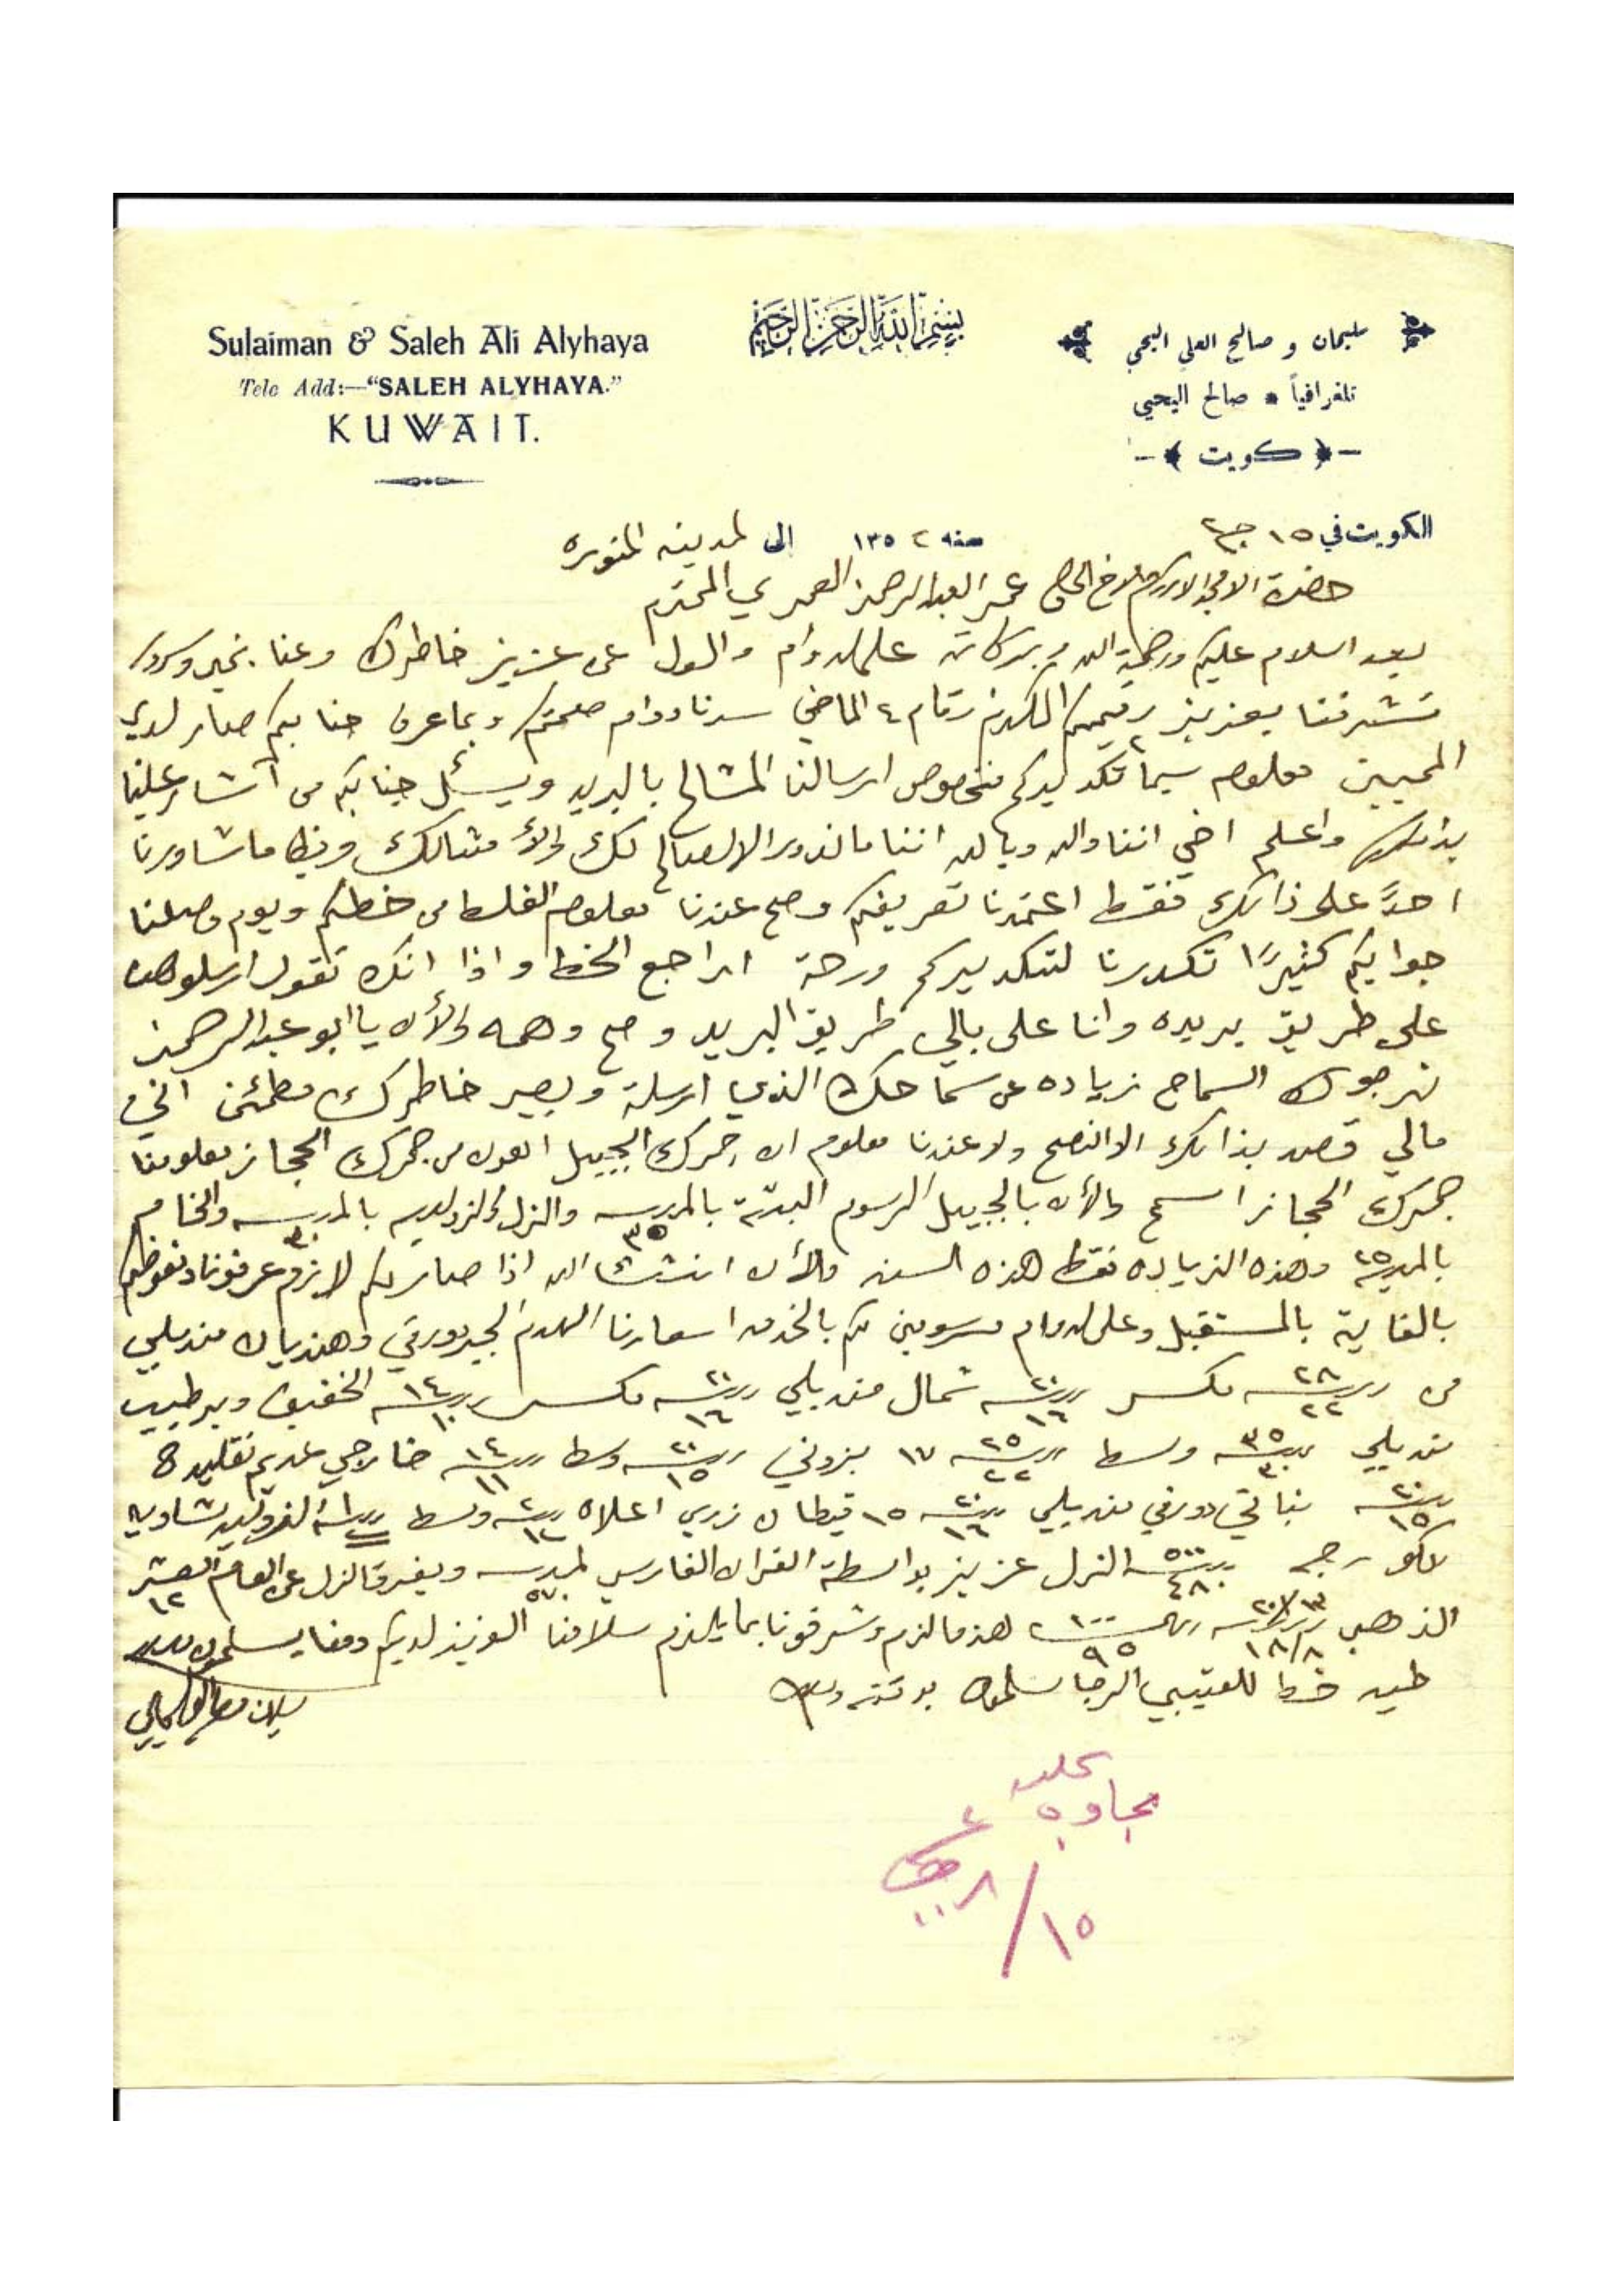 Sulaiman & Saleh Ali Alyhaya
Tele Add:—"SALEH ALYHAYA."
KUWAIT.
بسم الله الرحمن الرحيم
سليمان و صالح العلي اليحيى
تلغرافياً * صالح اليحيى
كويت
الكويت في ١٥ ج٢ سنه ١٣٥٢ الى المدينه المنوره
حضرة الامجد الاكرم الاخ الحاج عمر العبدالرحمن العمري المحترم
بعد السلام عليكم ورحمة الله وبركاته على الدوام والسول عن عزيز خاطرك وعنا بخير وسرور
تشرفنا بعزيز رقيمكم المكرم رقام ٤ الماضي سرنا دوام صحتكم وبما عرف جنابكم صار لدى
المحبين معلوم سيما تكديركم بخصوص ارسالنا المشالح بالبريد ويسئل جنابكم من اشار علينا
بذلك واعلم اخي اننا والله وبالله اننا ما ندور الا الصالح لك ولأمثالك وايضا ما شاورنا
احداً على ذالك فقط اعتمدنا تعريفكم وصح عندنا معلوم الغلط من خطكم ويوم وصلنا
جوابكم كثيراً تكدرنا لتكديركم ورحة اراجع الخط واذا انك تقول ارسلوهن
على طريق بريده وانا على بالي طريق البريد وصح وهمه والأن يا ابو عبدالرحمن
نرجوك السماح زياده عن سماحك الذي ارسلة ويصير خاطرك مطمئن اني
مالي قصد بذالك الا النصح ولا عندنا معلوم ان جمرك الجبيل اهون من جمرك الحجاز معلومنا
جمرك الحجاز اسمح والأن بالجبيل الرسوم البشت بالمدرسه ٣٥ والزل والزوليه بالمدرسه ٣٠ والخام
بالمدرسة ٢٥ وهذه الزياده فقط هذه السنه والأن انشاء الله اذا صار لكم لازوم عرفونا ونعوضكم
بالغاية بالمستقبل وعلى الدوام ممنونين لكم بالخدمه اسعارنا اليوم الجبر دورقي وهنديان منديلي
من ٢٨ ٢٢ مكسر ٢٠ ١٦ شمال منديلي ٢٠ ١٦ مكسر ١٤ ١٠ الخفيف وبر طيب
منديلي ٣٥ ٣٠ وسط ٢٥ ٢٢ ١٧ بزوني ٢٠ ١٥ وسط ١٤ ١١ خارجي عديم تقليده
٢٠ ١٥ بناتي دورقي منديلي ٢٠ ١٦ ١٥ قيطان زري اعلاه وسط
٥٠٠ ٤٨٠ الزل عزيز بواسطة القران الفارسي لمدرسه ٥٧٠ ويفرق الزل عن العام العشر ١٢
الذهب ١٨/٨ ١٠٠ ٩٥ هذا ما لزم وشرفونا بما يلزم سلامنا العزيز لديكم ومنا يسلمون والسلام
طيه خط للعتيبي الرجا سلموه بوقته والسلام
سليمان وصالح العلي اليحيى
بجاوبه
١٥/